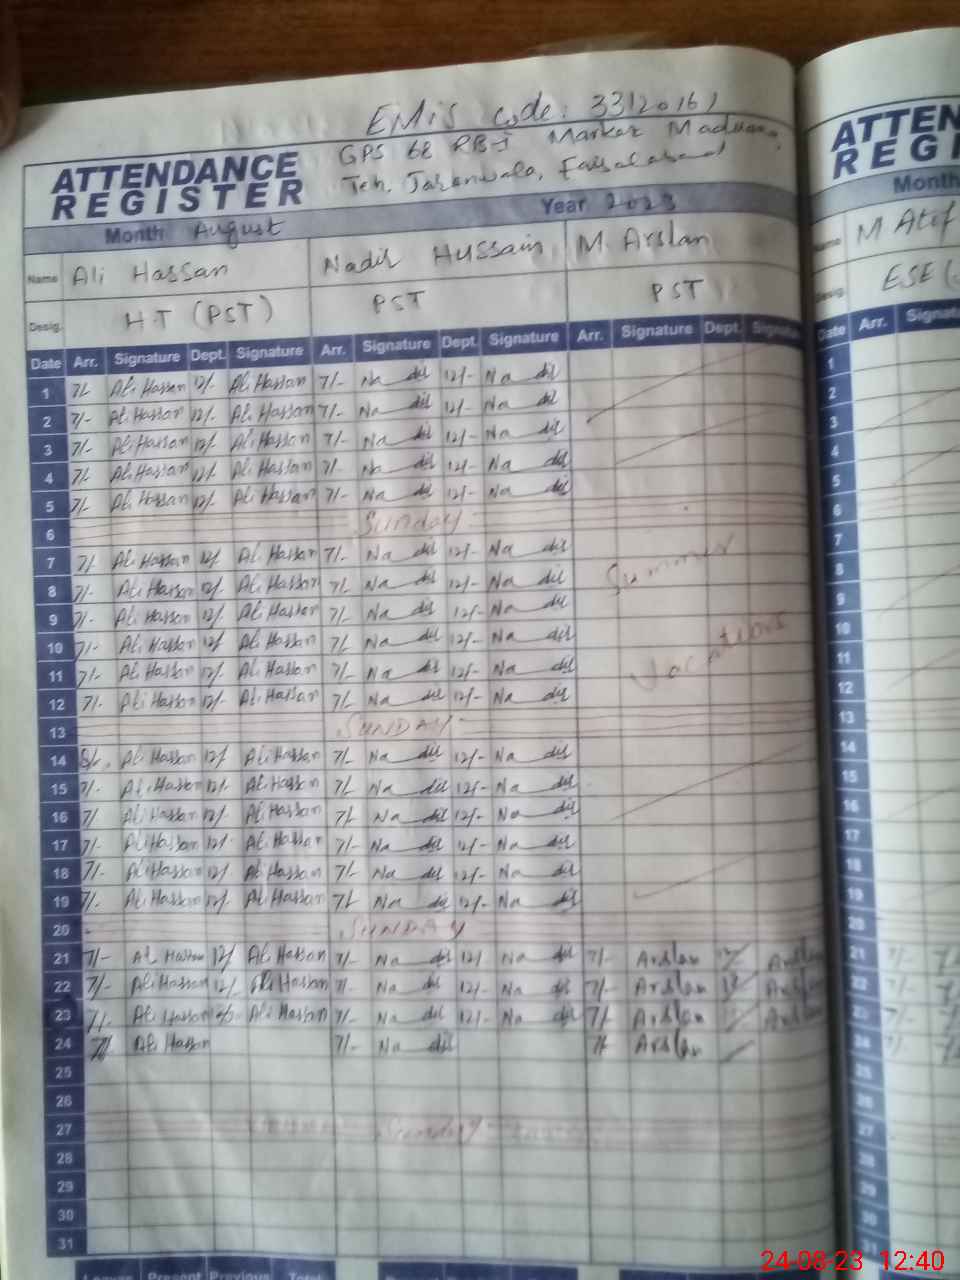 EMIS code: 33120161
GPS 68 RB-I Markaz
Teh, Jaranwala, Faisalabad
ATTENDANCE
REGISTER
Year 2023
Month August
Name Ali Hassan Nadir Hussain M. Arslan
Desig. H.T (PST) PST PST
Date Arr. Signature Dept. Signature Arr. Signature Dept. Signature Arr. Signature Dept. Signature
1 7/- Ali Hassan 12/- Ali Hassan 7/- Na dir 12/- Na dir
2 7/- Ali Hassan 12/- Ali Hassan 7/- Na dir 12/- Na dir
3 7/- Ali Hassan 12/- Ali Hassan 7/- Na dir 12/- Na dir
4 7/- Ali Hassan 12/- Ali Hassan 7/- Na dir 12/- Na dir
5 7/- Ali Hassan 12/- Ali Hassan 7/- Na dir 12/- Na dir
6 Sunday
7 7/- Ali Hassan 12/- Ali Hassan 7/- Na dir 12/- Na dir Summer
8 7/- Ali Hassan 12/- Ali Hassan 7/- Na dir 12/- Na dir
9 7/- Ali Hassan 12/- Ali Hassan 7/- Na dir 12/- Na dir
10 7/- Ali Hassan 12/- Ali Hassan 7/- Na dir 12/- Na dir
11 7/- Ali Hassan 12/- Ali Hassan 7/- Na dir 12/- Na dir Vacations
12 7/- Ali Hassan 12/- Ali Hassan 7/- Na dir 12/- Na dir
13 SUNDAY
14 Ali Hassan 12/- Ali Hassan 7/- Na dir 12/- Na dir
15 7/- Ali Hassan 12/- Ali Hassan 7/- Na dir 12/- Na dir
16 7/- Ali Hassan 12/- Ali Hassan 7/- Na dir 12/- Na dir
17 7/- Ali Hassan 12/- Ali Hassan 7/- Na dir 12/- Na dir
18 7/- Ali Hassan 12/- Ali Hassan 7/- Na dir 12/- Na dir
19 7/- Ali Hassan 12/- Ali Hassan 7/- Na dir 12/- Na dir
20 SUNDAY
21 7/- Ali Hassan 12/- Ali Hassan 7/- Na dir 12/- Na dir 7/- Arslan 12/- Arslan
22 7/- Ali Hassan 12/- Ali Hassan 7/- Na dir 12/- Na dir 7/- Arslan 12/- Arslan
23 7/- Ali Hassan 12/- Ali Hassan 7/- Na dir 12/- Na dir 7/- Arslan Arslan
24 7/- Ali Hassan 7/- Na dir 7/- Arslan
25
26
27 Sunday
28
29
30
31
Leaves Present Previous Total
ATTEN
REGI
Month
Name M Atif
Desig. ESE
Date Arr. Signat
1
2
3
4
5
6
7
8
9
10
11
12
13
14
15
16
17
18
19
20
21 7/-
22 7/-
23 7/-
24 7/-
25
26
27
28
29
30
31
24-08-23 12:40